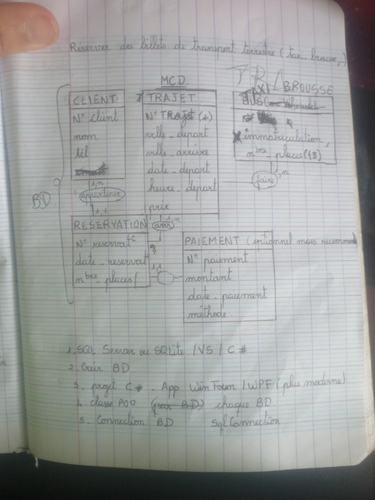 Réserver des billets de transport terrestre (taxi brousse,)
MCD
CLIENT
N° client
nom
tel
1,n
appartenir
1,1
TRAJET
N° TRajet (+)
ville_depart
ville_arrive
date_depart
heure_depart
prix
TAXI BROUSSE
immatriculation,
nbre_places (18)
faire
BD
RESERVATION
N° reservat°
date_reservat°
nbre_places/
avoir
1,1
PAIEMENT (optionnel mais recommandé
N° paiement
montant
date_paiement
méthode
1. SQL Server ou SQLite / VS / C#
2. Créer BD
3. projet C# . App WinForm / WPF (plus moderne)
4. classe POO chaque BD
5. Connection BD SqlConnection